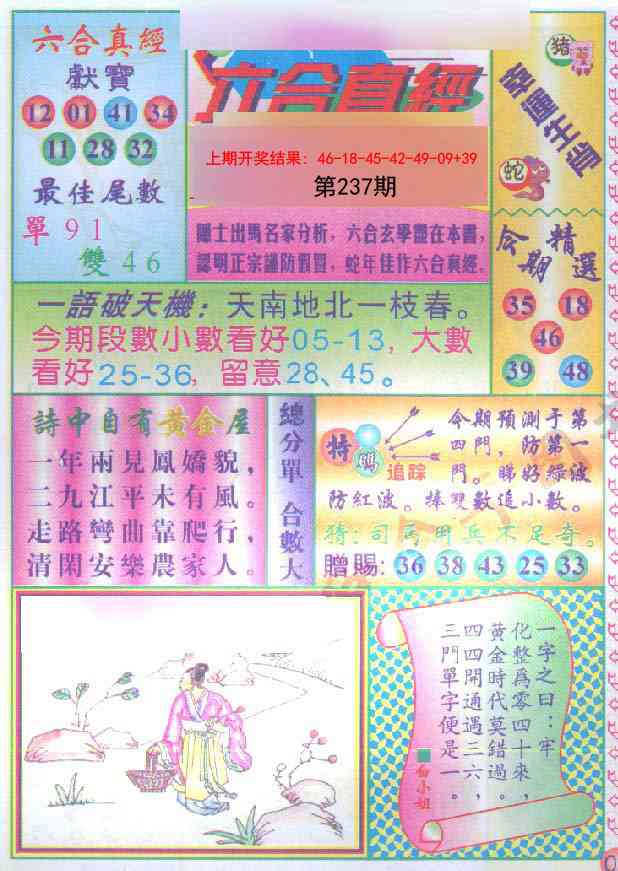 六合真經
獻寶
12 01 41 34
11 28 32
最佳尾數
單91
雙46
六合真經
上期开奖结果：46-18-45-42-49-09+39
第237期
隱士出馬名家分析，六合玄學盡在本書，
認明正宗謹防假冒，蛇年佳作六合真經。
豬
蛇
今期精選
35 18
46
39 48
一語破天機：天南地北一枝春。
今期段數小數看好05-13，大數
看好25-36，留意28、45。
詩中自有黃金屋
一年兩見鳳嬌貌，
二九江平未有風。
走路彎曲靠爬行，
清閑安樂農家人。
總分單 合數大
特碼
追踪
今期預測于第
四門，防第一
門。睇好綠波
防紅波。捧雙數追小數。
猜：司馬用兵不足奇。
贈賜：36 38 43 25 33
一字之曰：牢
化整為零四十來，
黃金時代莫錯過。
四四開通遇三六，
三門單字便是一。
白小姐